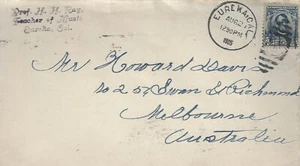 Prof. H. H.
Teacher of Music
Eureka, Cal.
EUREKA, CAL.
AUG 21
12:30 PM
1905
Mr Howard Davi
502 57 Swan & Richmond
Melbourne
Australia